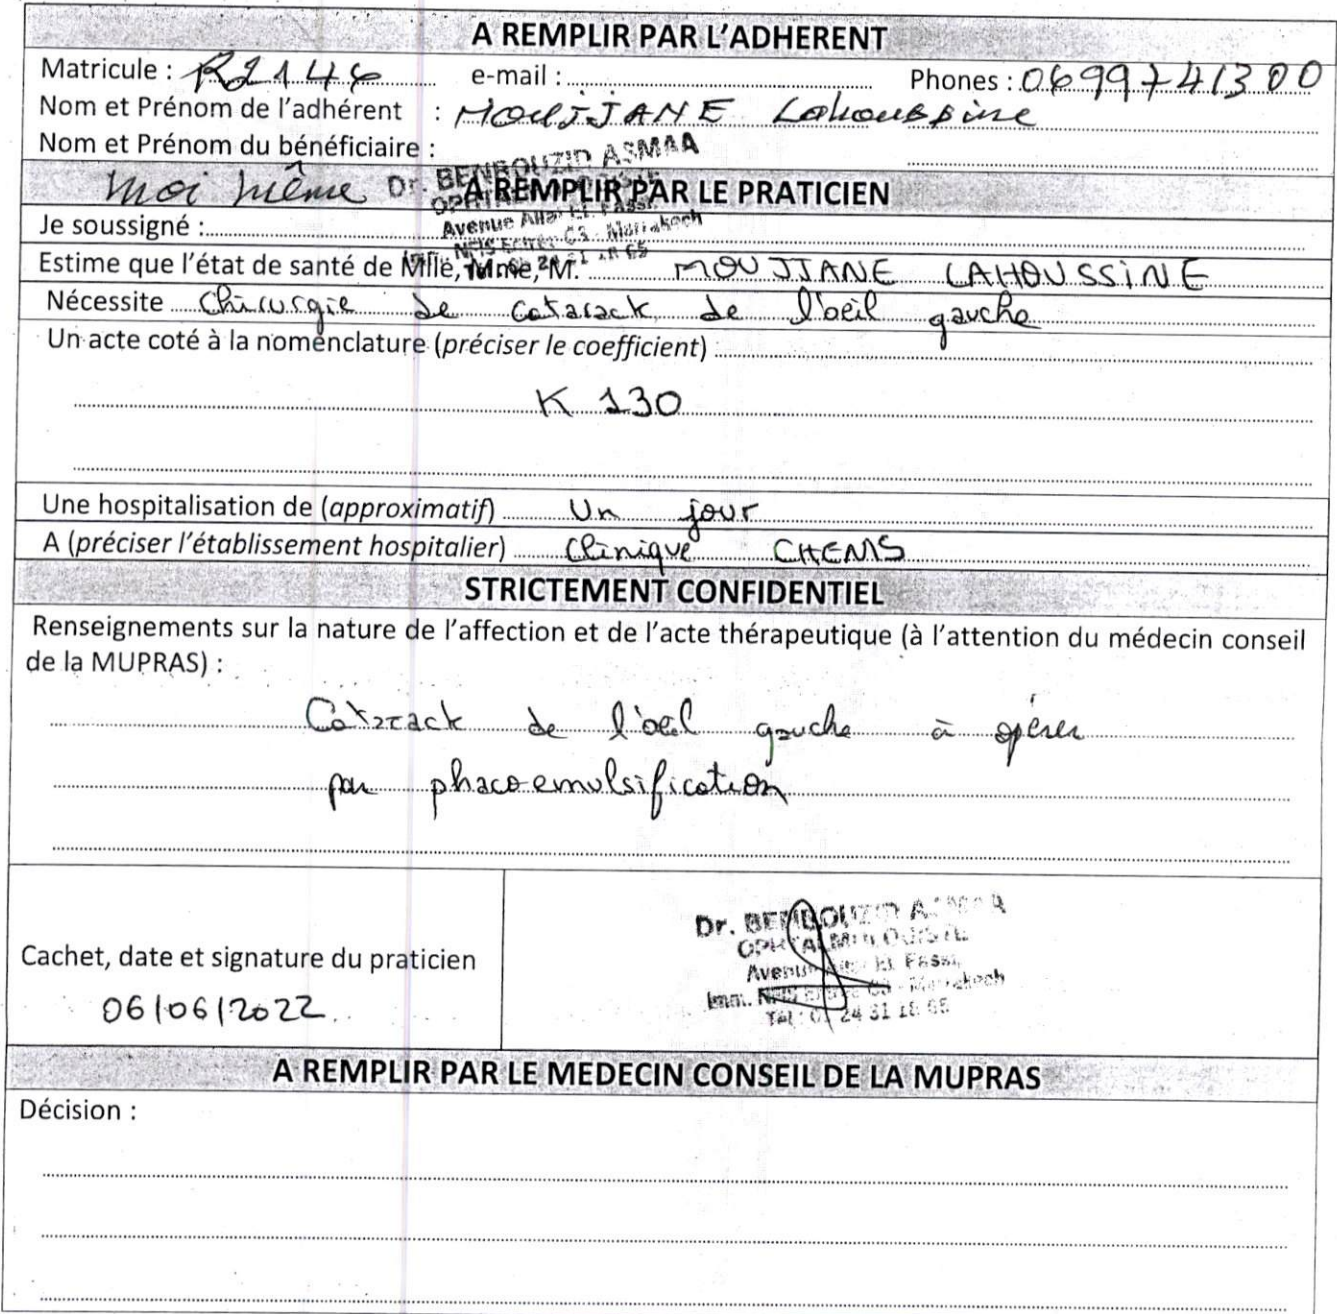 A REMPLIR PAR L'ADHERENT
Matricule : R2144 e-mail : Phones : 0699741300
Nom et Prénom de l'adhérent : MOUJJANE Lahoussine
Nom et Prénom du bénéficiaire :
moi même Dr. BENBOUZID ASMAA
A REMPLIR PAR LE PRATICIEN
Avenue Allal El Fassi
Je soussigné :
Marrakech
Estime que l'état de santé de Mlle, Mme, M. MOUJJANE LAHOUSSINE
Nécessite Chirurgie de catarack de l'oeil gauche
Un acte coté à la nomenclature (préciser le coefficient)
K 130
Une hospitalisation de (approximatif) Un jour
A (préciser l'établissement hospitalier) Clinique CHEMS
STRICTEMENT CONFIDENTIEL
Renseignements sur la nature de l'affection et de l'acte thérapeutique (à l'attention du médecin conseil
de la MUPRAS) :
Catarack de l'oeil gauche à opérer
par phacoemulsification
Dr. BENBOUZID ASMAA
OPHTALMOLOGISTE
Avenue Allal El Fassi,
Imm. Marrakech
Cachet, date et signature du praticien
06/06/2022
A REMPLIR PAR LE MEDECIN CONSEIL DE LA MUPRAS
Décision :